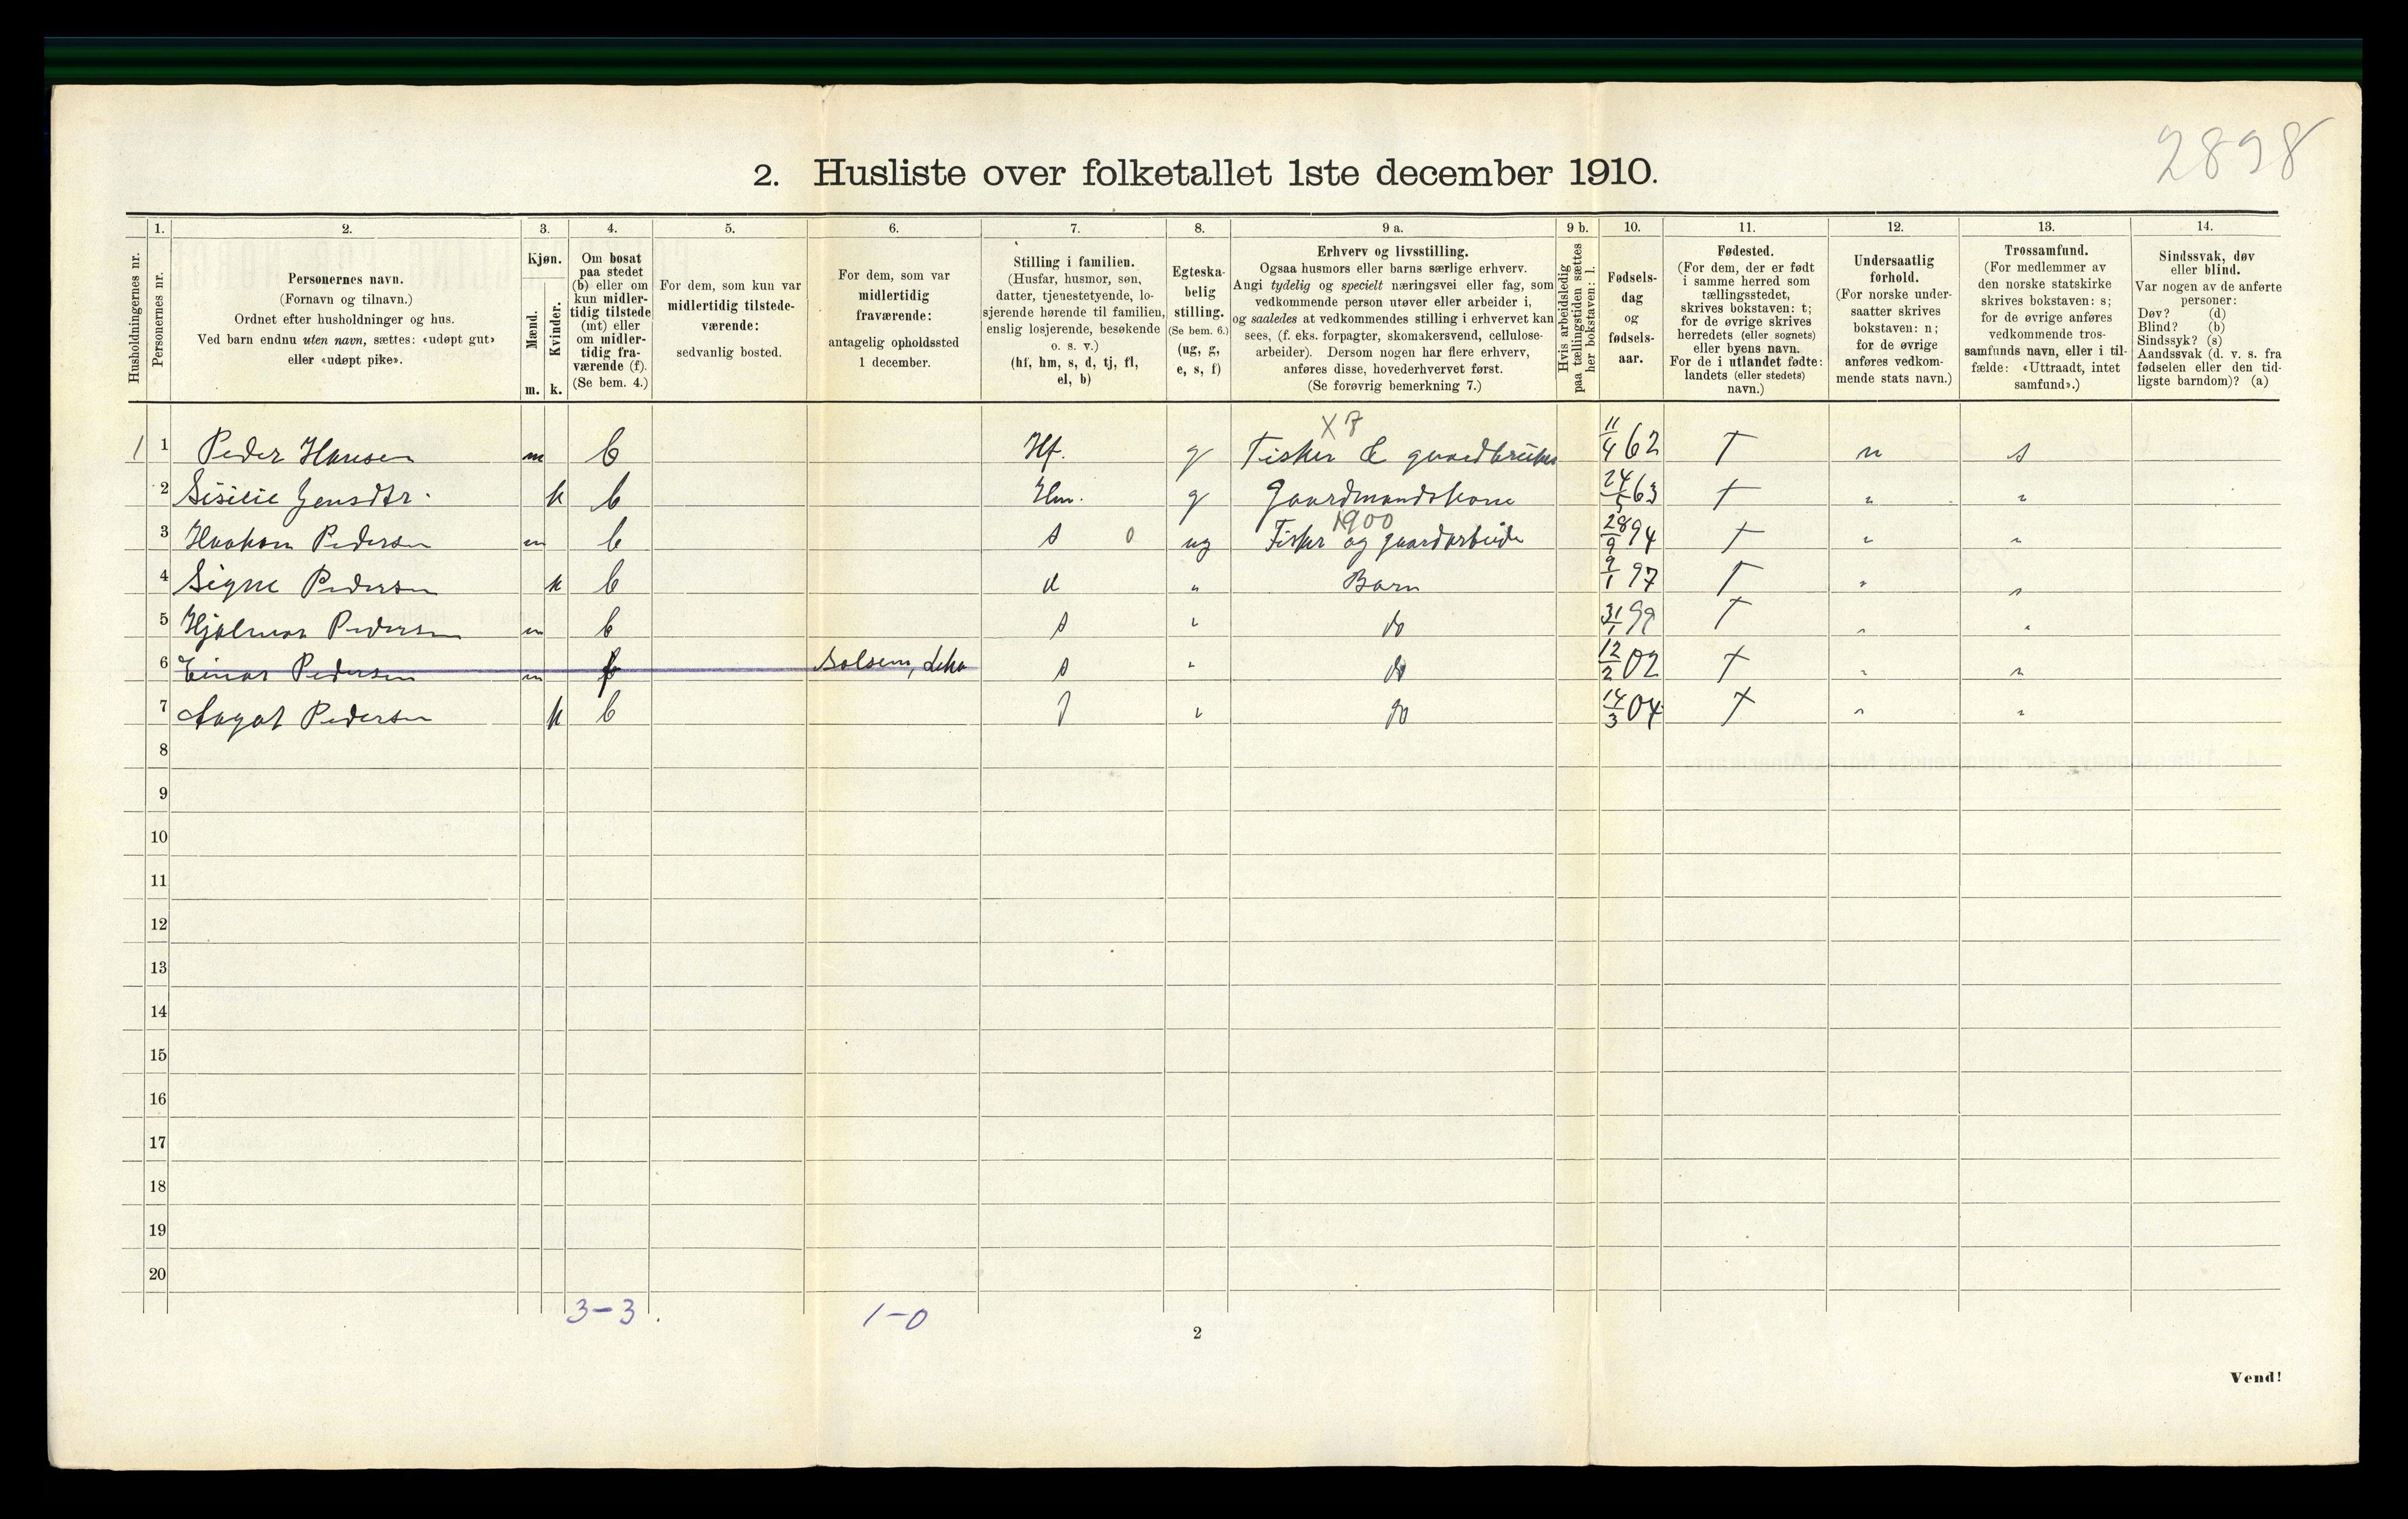 2898
2. Husliste over folketallet 1ste december 1910.
1. 2. 3. 4. 5. 6. 7. 8. 9 a. 9 b. 10. 11. 12. 13. 14.
Husholdningernes nr.
Personernes nr.
Personernes navn.
(Fornavn og tilnavn.)
Ordnet efter husholdninger og hus.
Ved barn endnu uten navn, sættes: «udøpt gut»
eller «udøpt pike».
Kjøn.
Mænd.
Kvinder.
m. k.
Om bosat
paa stedet
(b) eller om
kun midler-
tidig tilstede
(mt) eller
om midler-
tidig fra-
værende (f).
(Se bem. 4.)
For dem, som kun var
midlertidig tilstede-
værende:
sedvanlig bosted.
For dem, som var
midlertidig
fraværende:
antagelig opholdssted
1 december.
Stilling i familien.
(Husfar, husmor, søn,
datter, tjenestetyende, lo-
sjerende hørende til familien,
enslig losjerende, besøkende
o. s. v.)
(hf, hm, s, d, tj, fl,
el, b)
Egteska-
belig
stilling.
(Se bem. 6.)
(ug, g,
e, s, f)
Erhverv og livsstilling.
Ogsaa husmors eller barns særlige erhverv.
Angi tydelig og specielt næringsvei eller fag, som
vedkommende person utøver eller arbeider i,
og saaledes at vedkommendes stilling i erhvervet kan
sees, (f. eks. forpagter, skomakersvend, cellulose-
arbeider). Dersom nogen har flere erhverv,
anføres disse, hovederhvervet først.
(Se forøvrig bemerkning 7.)
Hvis arbeidsledig
paa tællingstiden sættes
her bokstaven: l.
Fødsels-
dag
og
fødsels-
aar.
Fødested.
(For dem, der er født
i samme herred som
tællingsstedet,
skrives bokstaven: t;
for de øvrige skrives
herredets (eller sognets)
eller byens navn.
For de i utlandet fødte:
landets (eller stedets)
navn.)
Undersaatlig
forhold.
(For norske under-
saatter skrives
bokstaven: n;
for de øvrige
anføres vedkom-
mende stats navn.)
Trossamfund.
(For medlemmer av
den norske statskirke
skrives bokstaven: s;
for de øvrige anføres
vedkommende tros-
samfunds navn, eller i til-
fælde: «Uttraadt, intet
samfund».)
Sindssvak, døv
eller blind.
Var nogen av de anførte
personer:
Døv? (d)
Blind? (b)
Sindssyk? (s)
Aandssvak (d. v. s. fra
fødselen eller den tid-
ligste barndom)? (a)
X 8
1 1 Peder Hansen m b Hf. g Fisker & gaardbruker 11/4 62 t n s
2 Sisilie Jensdtr. k b Hm. g Gaardmandskone 24/5 63 t " "
1900
3 Haakon Pedersen m b s 0 ug Fisker og gaardarbeide 28/9 94 t " "
4 Signe Pedersen k b d " Barn 9/1 97 t " "
5 Hjalmar Pedersen m b s " do 31/1 99 t " "
6 Einar Pedersen m f Solsem, Leka s " do 12/2 02 t " "
7 Aagot Pedersen k b d " do 14/3 04 t " "
8
9
10
11
12
13
14
15
16
17
18
19
20
3-3 1-0
2
Vend!